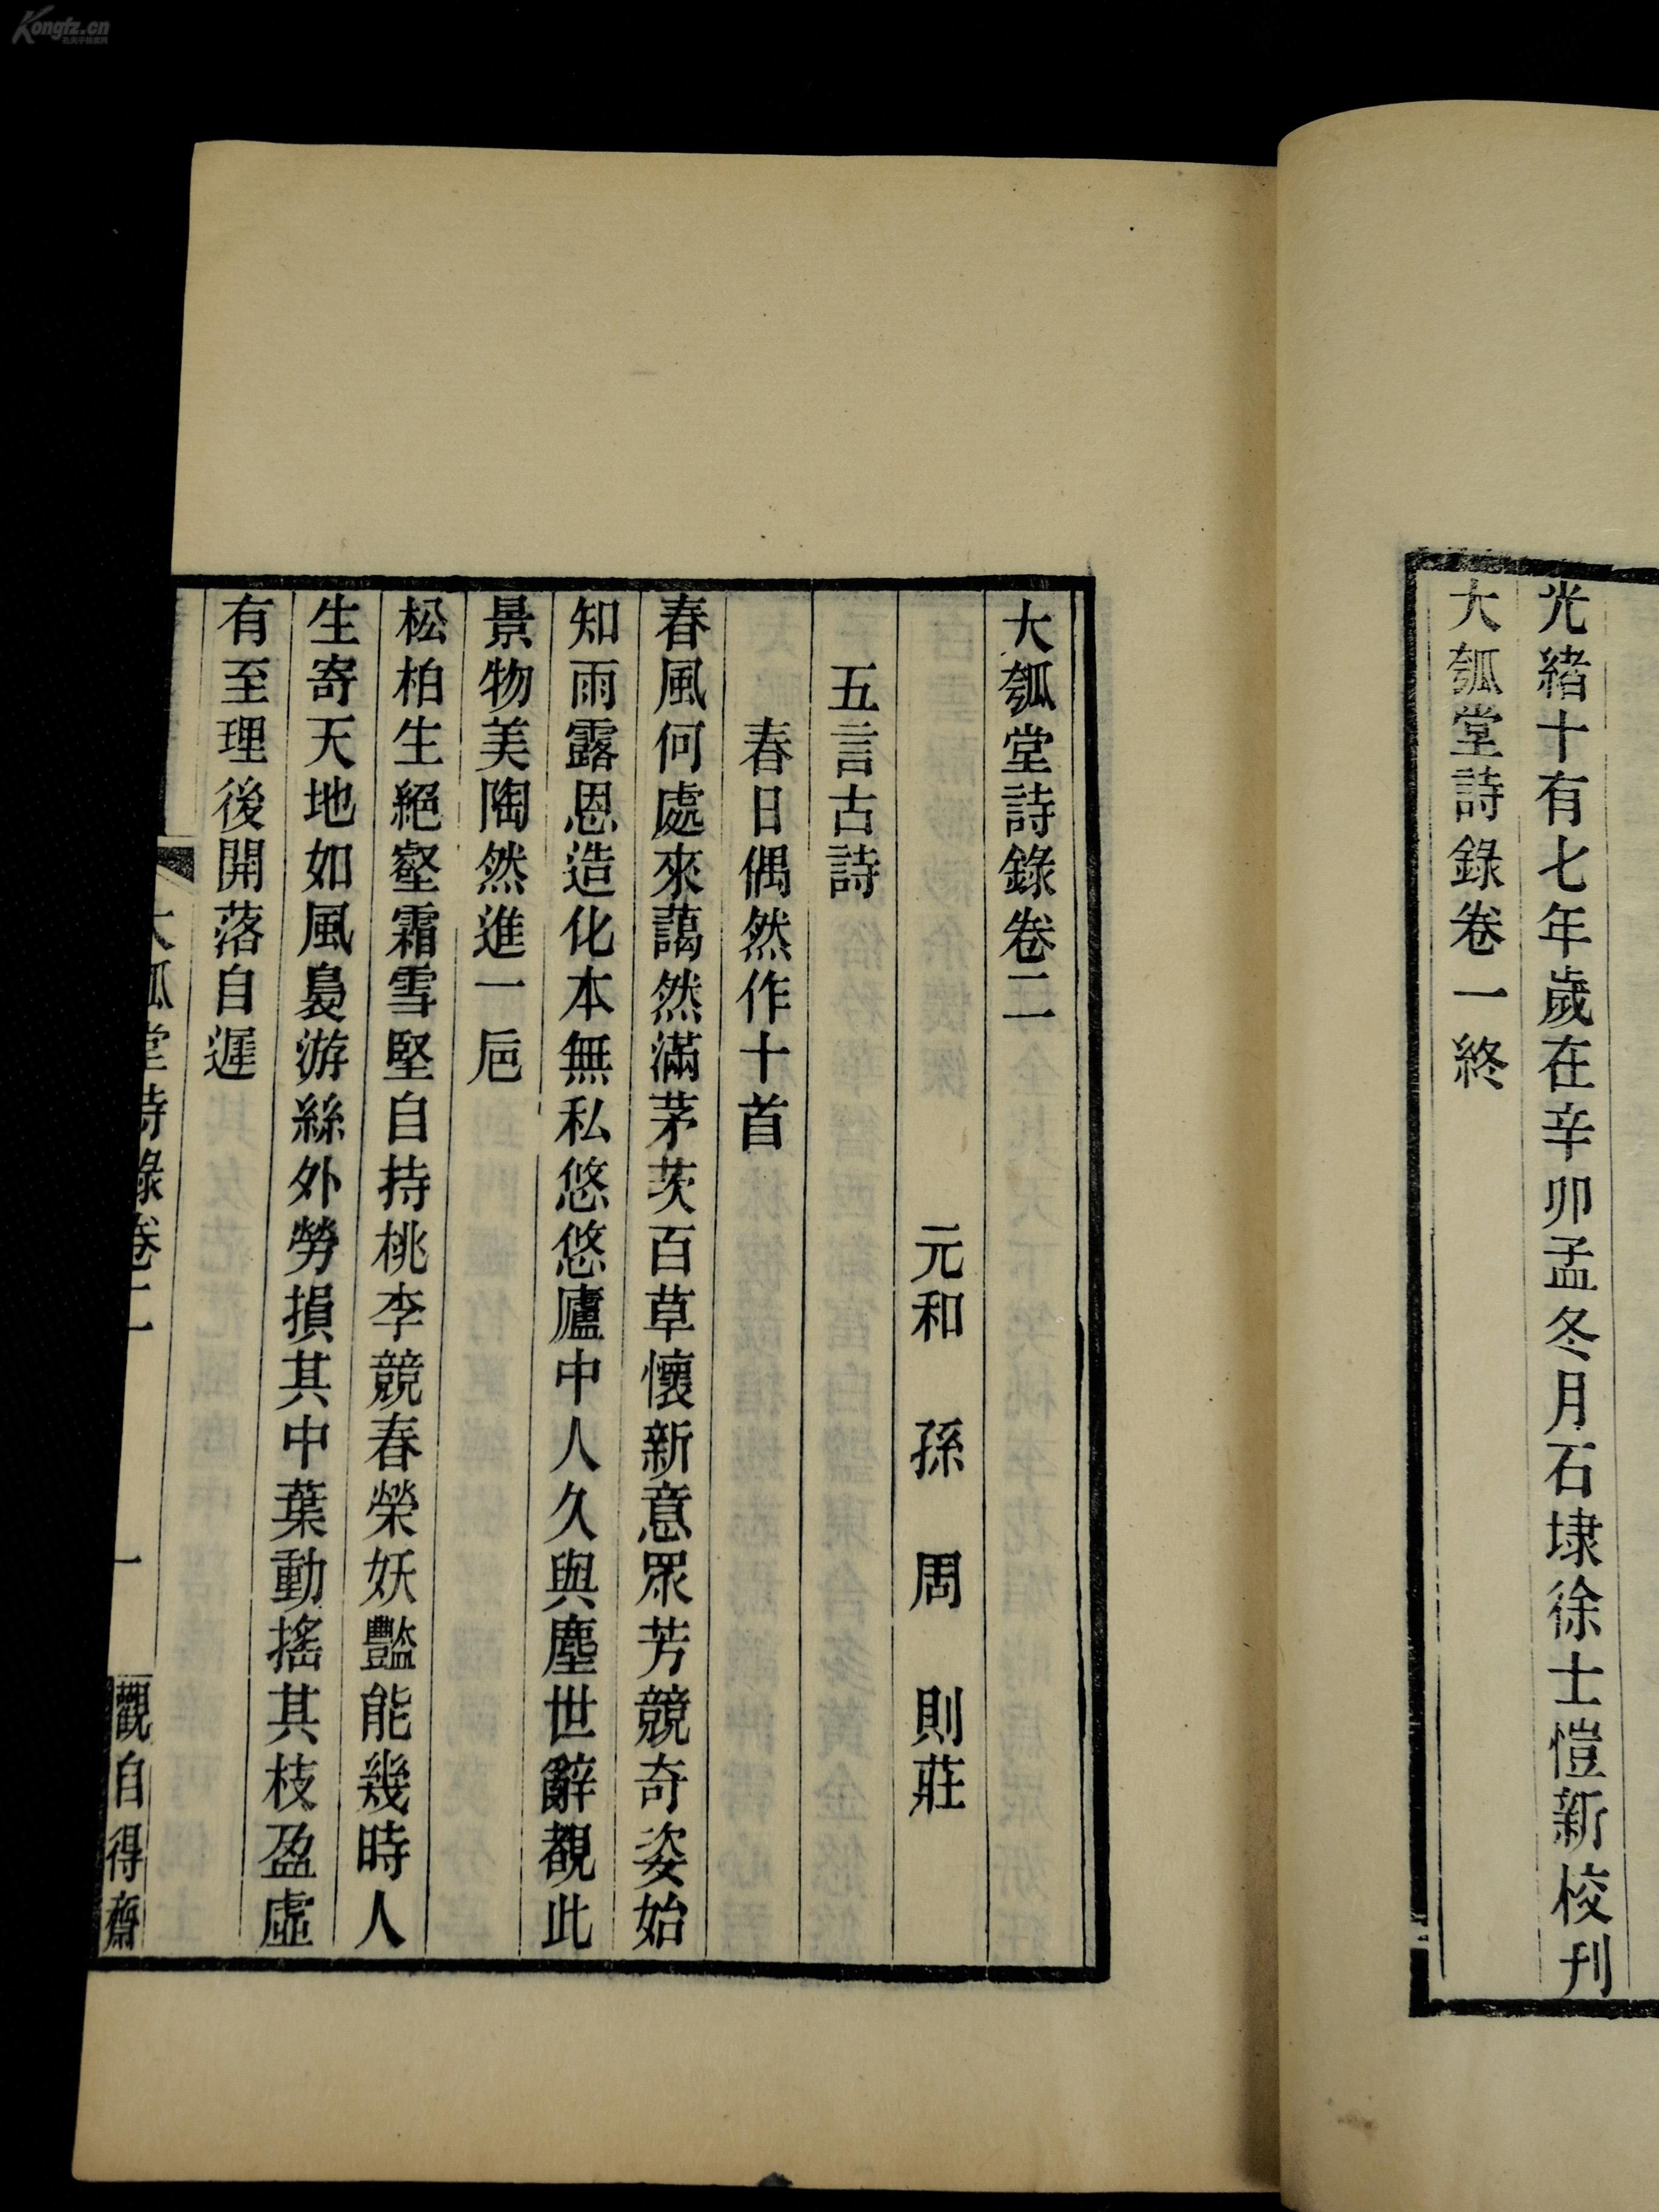 Kongfz.cn
光緒十有七年歲在辛卯孟冬月石埭徐士愷新校刊
大瓠堂詩錄卷一終
大瓠堂詩錄卷二
元和 孫 周 則莊
五言古詩
春日偶然作十首
春風何處來藹然滿茅茨百草懷新意眾芳競奇姿始
知雨露恩造化本無私悠悠廬中人久與塵世辭覩此
景物美陶然進一巵
松柏生絕壑霜雪堅自持桃李競春榮妖豔能幾時人
生寄天地如風裊游絲外勞損其中葉動搖其枝盈虛
有至理後開落自遲
大瓠堂詩錄卷二
一
觀自得齋